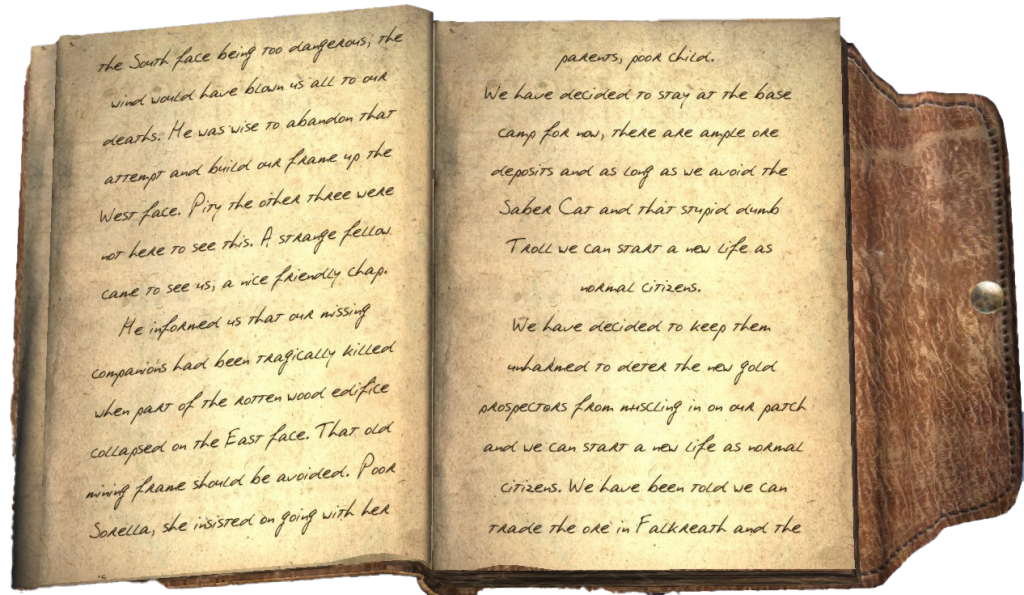 the South face being too dangerous; the
wind would have blown us all to our
deaths. He was wise to abandon that
attempt and build our frame up the
West face. Pity the other three were
not here to see this. A strange fellow
came to see us, a nice friendly chap.
He informed us that our missing
companions had been tragically killed
when part of the rotten wood edifice
collapsed on the East face. That old
mining frame should be avoided. Poor
Sorella, she insisted on going with her
parents, poor child.
We have decided to stay at the base
camp for now, there are ample ore
deposits and as long as we avoid the
Saber Cat and that stupid dumb
Troll we can start a new life as
normal citizens.
We have decided to keep them
unharmed to deter the new gold
prospectors from muscling in on our patch
and we can start a new life as normal
citizens. We have been told we can
trade the ore in Falkreath and the